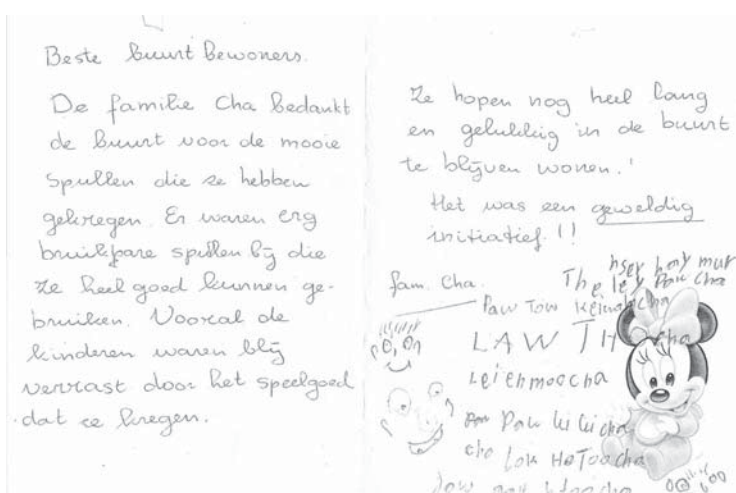 Beste buurt bewoners.
De familie Cha bedankt
de buurt voor de mooie
spullen die ze hebben
gekregen. Er waren erg
bruikpare spullen bij die
ze heel goed kunnen ge-
bruiken. Vooral de
kinderen waren blij
verrast door het speelgoed
dat ze kregen.
Ze hopen nog heel lang
en gelukkig in de buurt
te blijven wonen.!
Het was een geweldig
initiatief.!!
fam. Cha.
Paw Tow
LAW TH cha
Leiehmoocha
Paw
cho Lok HeToocha